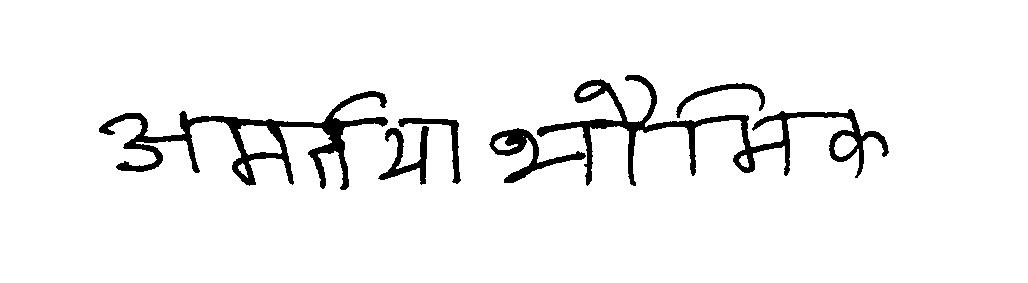 अमर्त्तया भौमिक